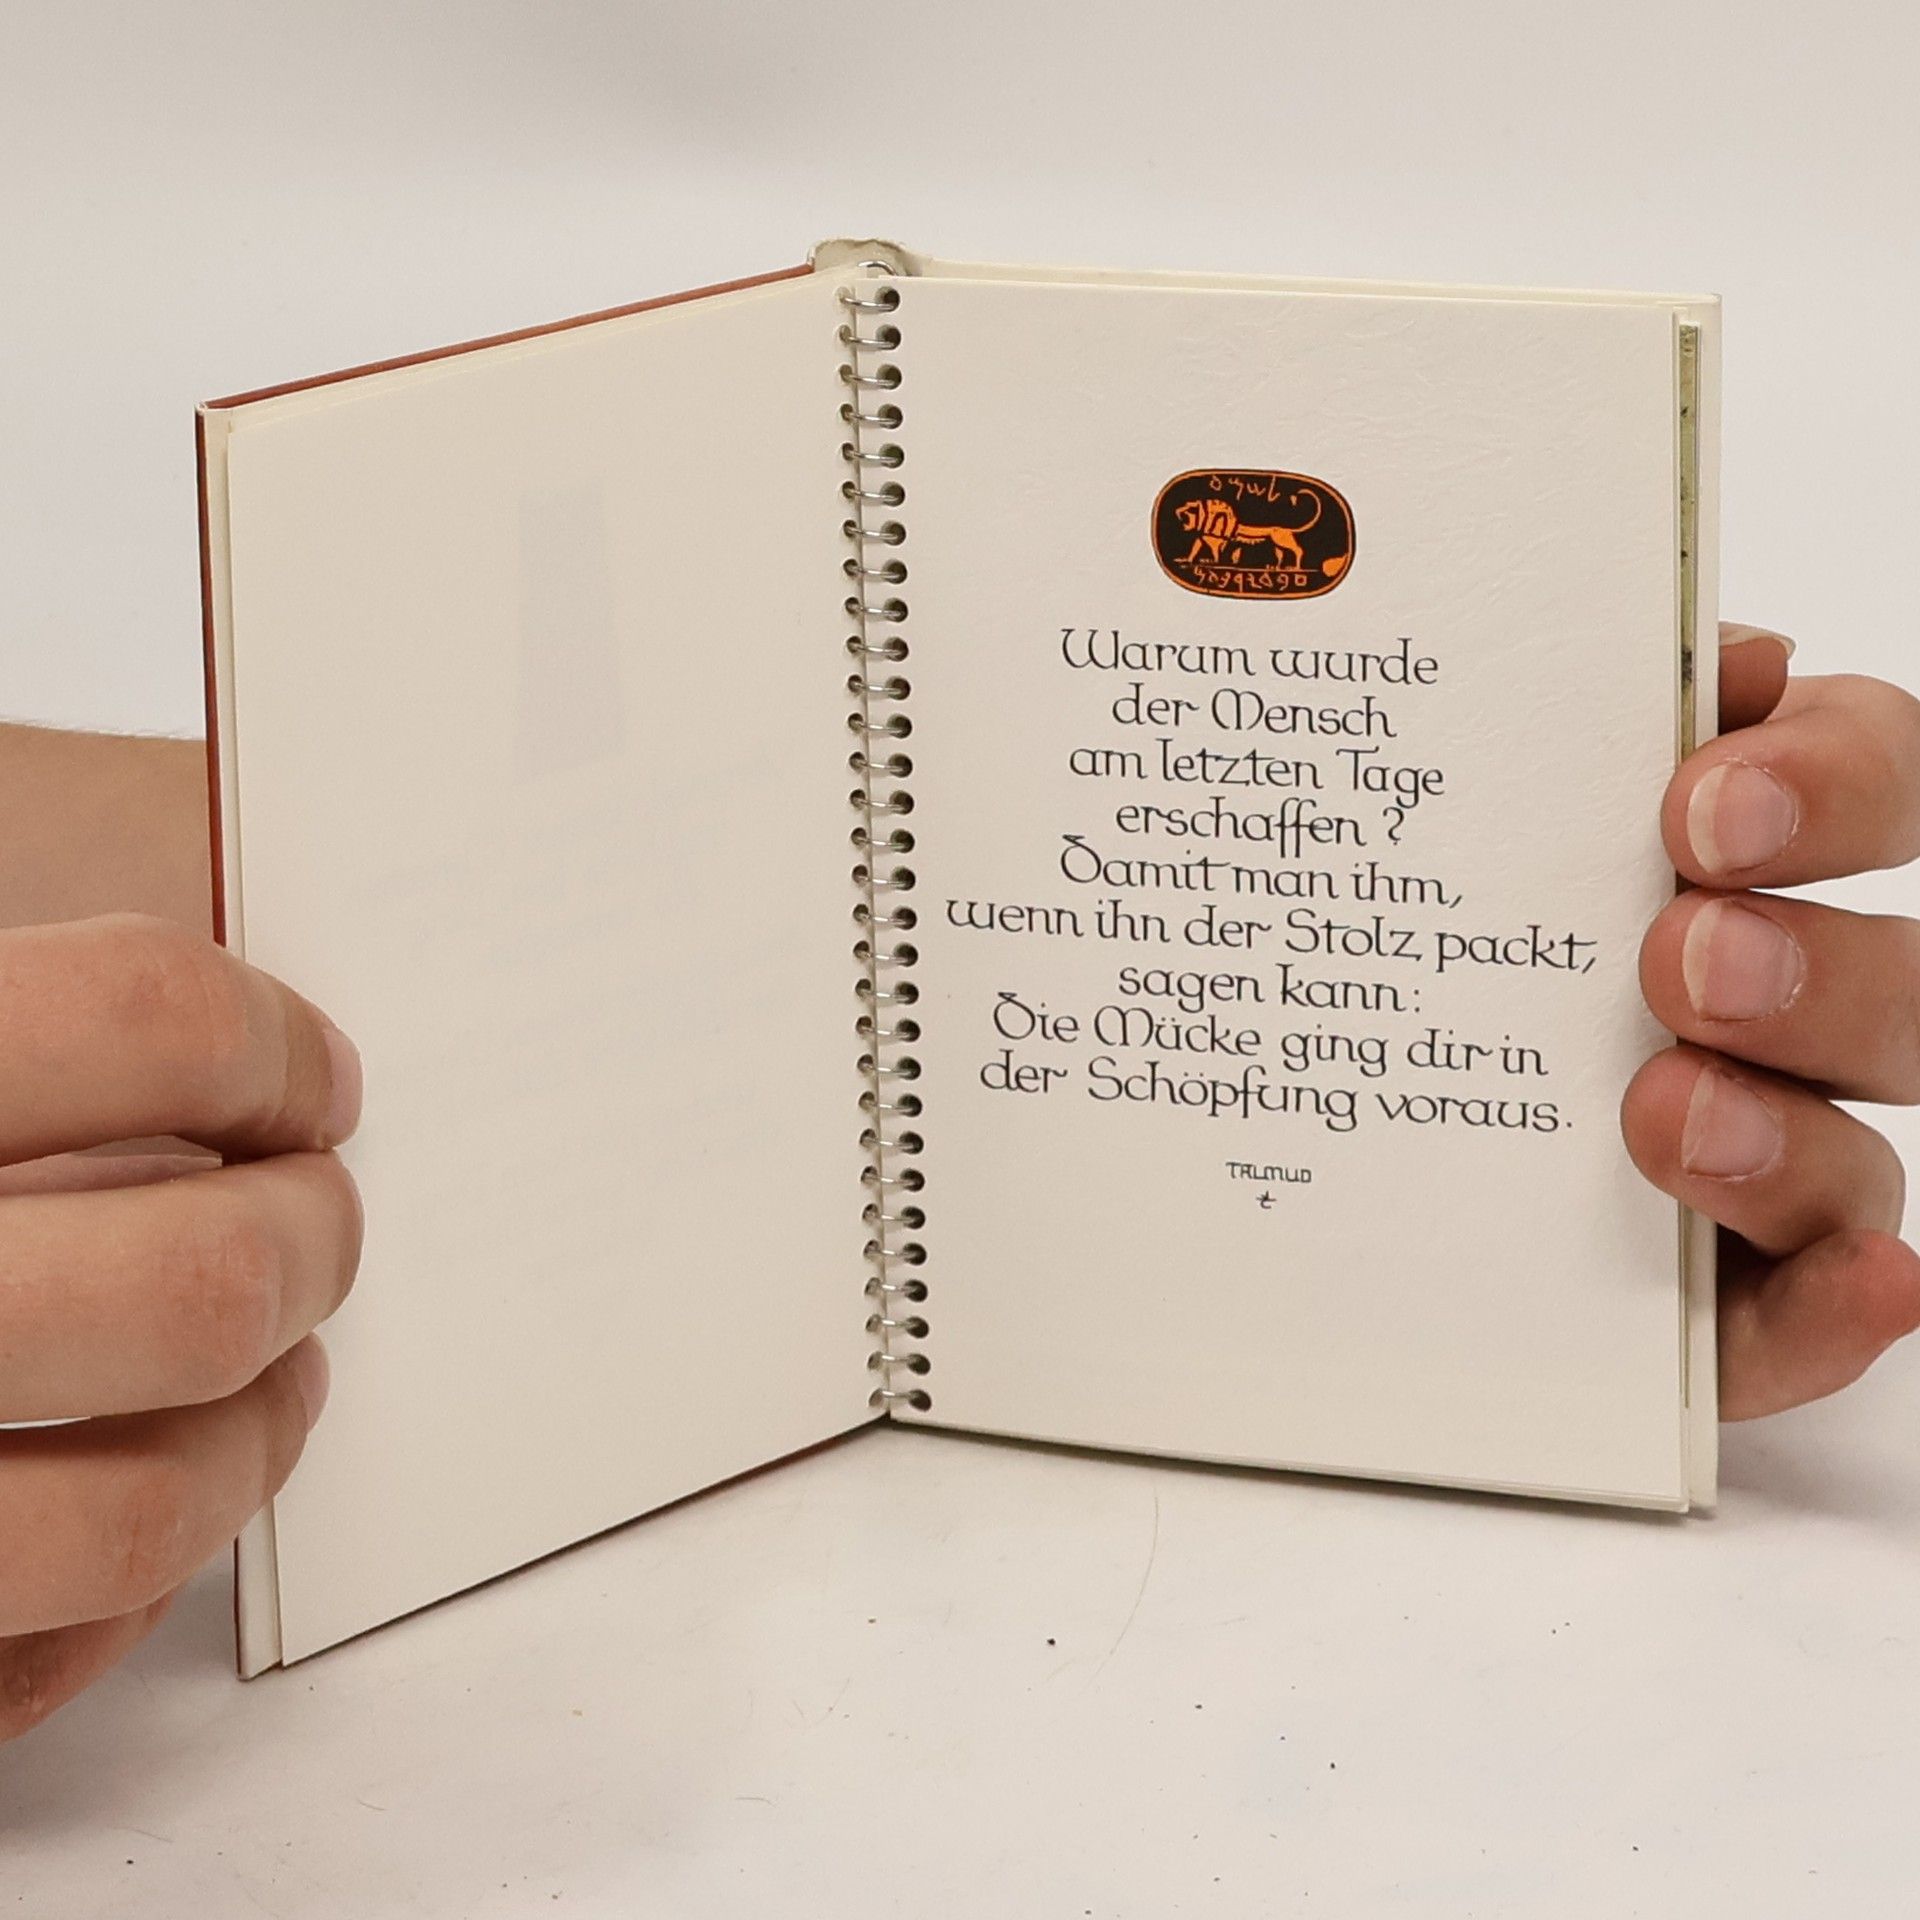 Warum wurde
der Mensch
am letzten Tage
erschaffen ?
Damit man ihm,
wenn ihn der Stolz packt,
sagen kann:
Die Mücke ging dir in
der Schöpfung voraus.
TALMUD